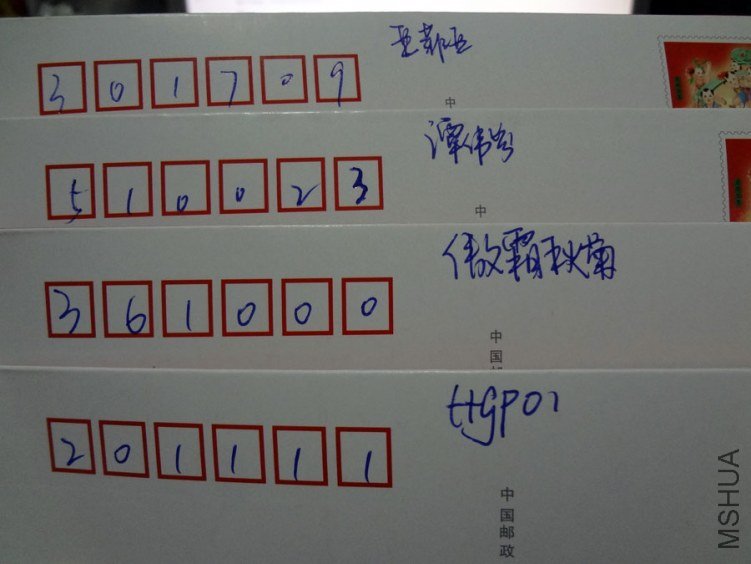 301709
中
510023
谭伟岑
中
361000
傲霜秋菊
中国邮
201111
HGP01
中国邮政
MSHUA